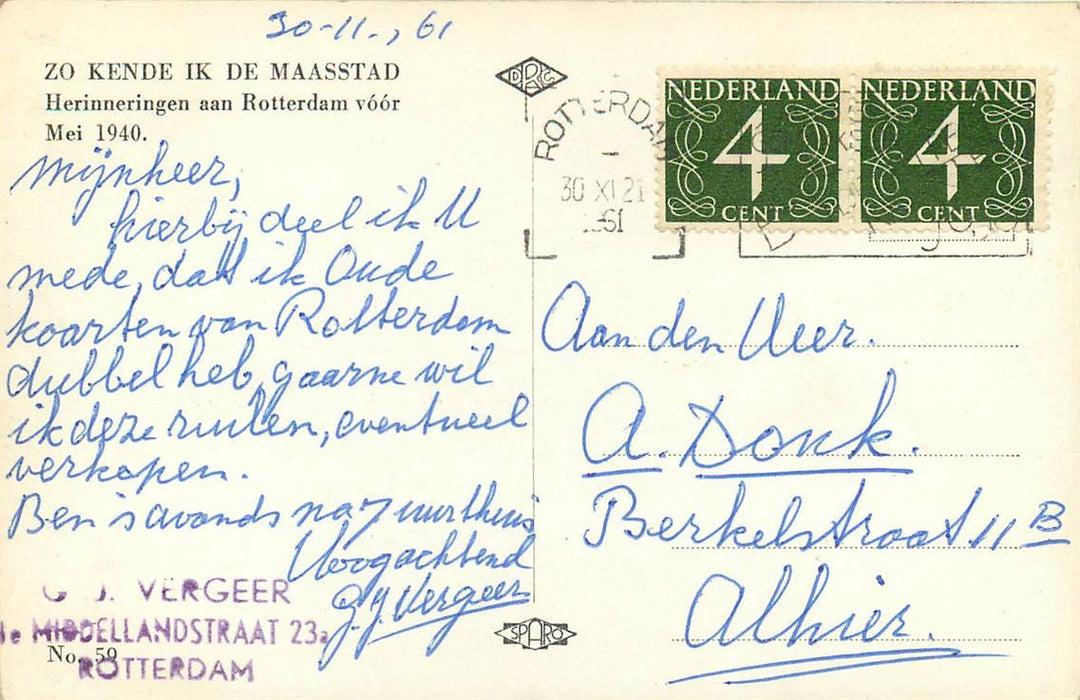 30-11-, 61
ZO KENDE IK DE MAASSTAD
Herinneringen aan Rotterdam vóór
Mei 1940.
Mijnheer,
hierbij deel ik U
mede, dat ik Oude
kaarten van Rotterdam
dubbel heb, gaarne wil
ik deze ruilen, eventueel
verkopen.
Ben 's avonds na 7 uur thuis
Hoogachtend
G.J. Vergeer
G. J. VERGEER
1e MIDDELLANDSTRAAT 23a
ROTTERDAM
No. 59
SPARO
ROTTERDAM
30 XI 21
1961
NEDERLAND
4
CENT
NEDERLAND
4
CENT
Aan den Heer.
A. Donk.
Berkelstraat 11 B
Alhier.